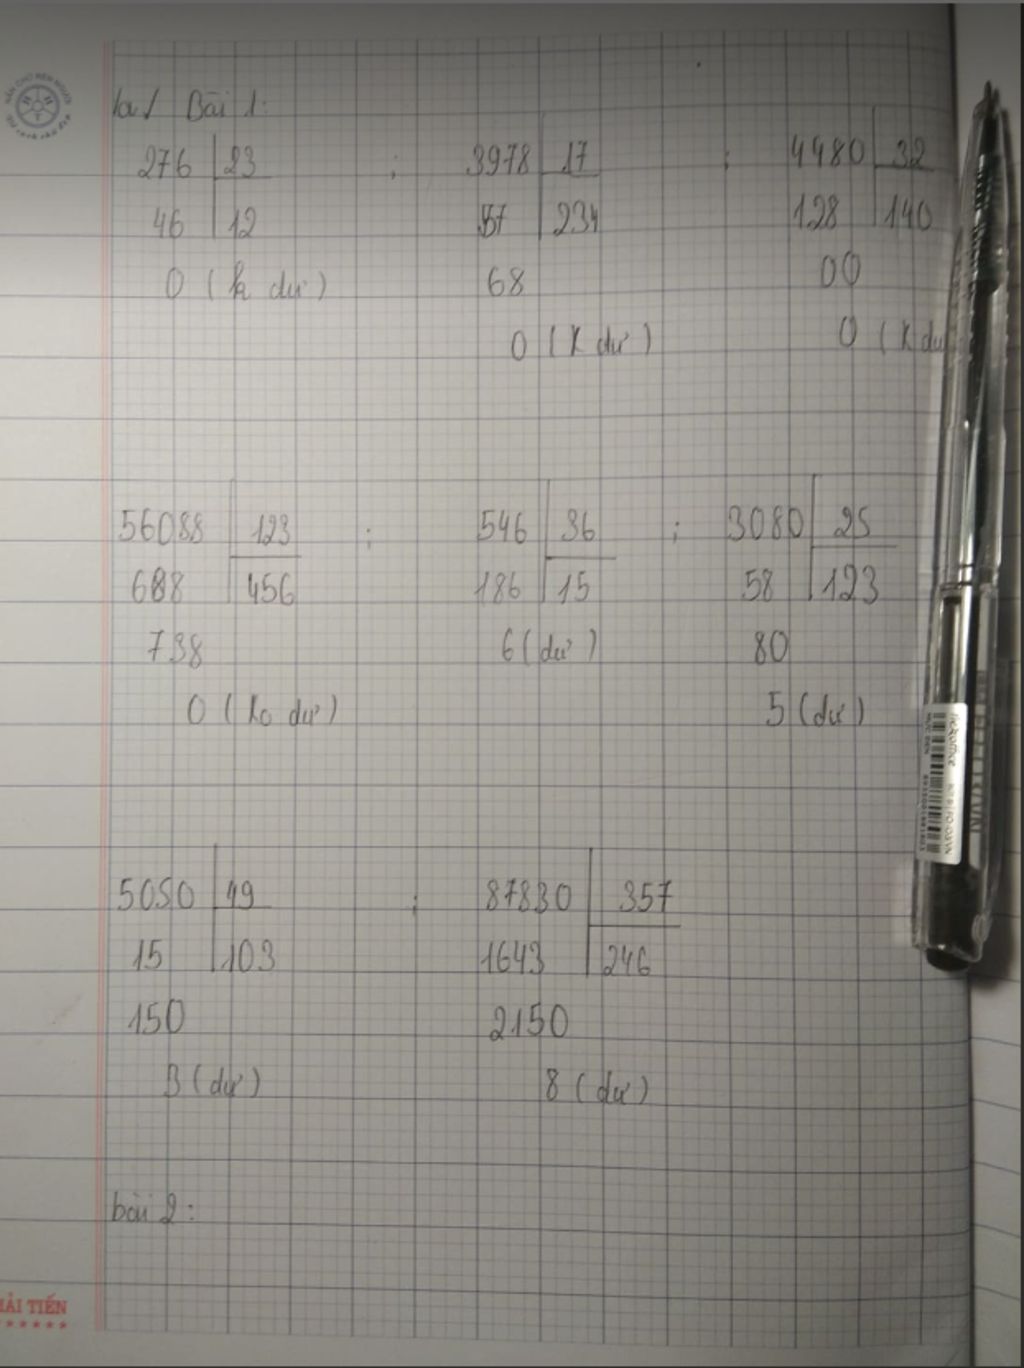 a/ Bài 1:
276 23 ; 3978 17 ; 4480 32
46 12 57 234 128 140
0 (k dư) 68 00
0 (K dư) 0 (K dư
56088 123 ; 546 36 ; 3080 25
688 456 186 15 58 123
738 6 (dư) 80
0 (ko dư) 5 (dư)
5050 49 ; 87830 357
15 103 1643 246
150 2150
3 (dư) 8 (dư)
bài 2:
HẢI TIẾN